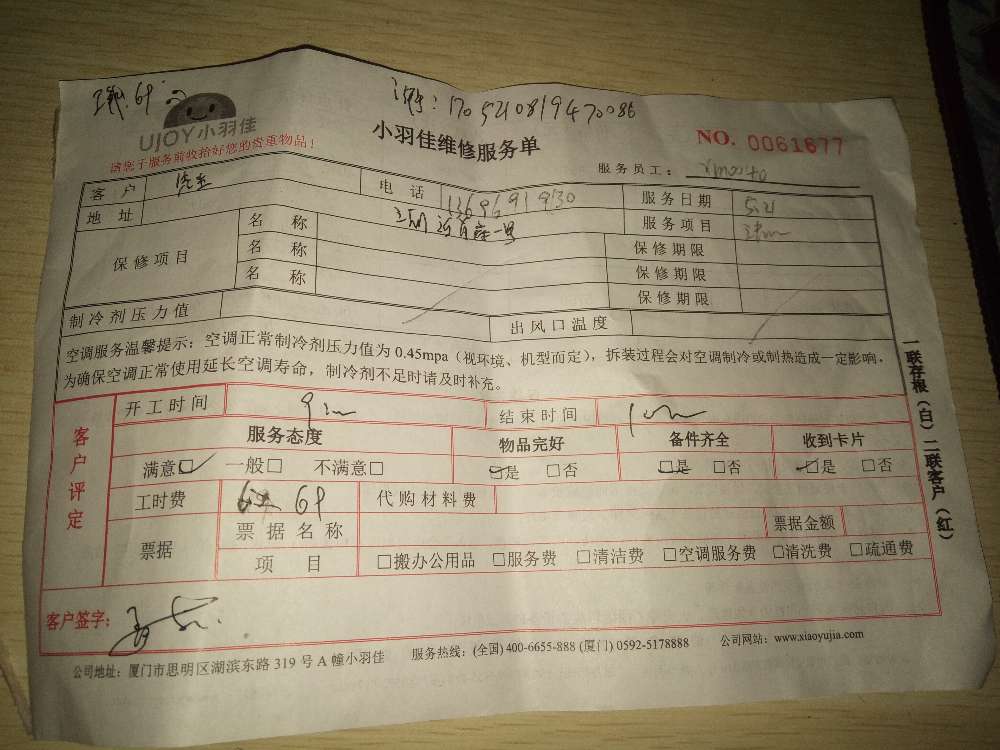 1705210819470086
UJOY小羽佳
请您于服务前收拾好您的贵重物品！
小羽佳维修服务单
NO. 0061677
服务员工：
客户
电话
服务日期 5.21
地址
服务项目
保修项目
名称
保修期限
名称
保修期限
名称
保修期限
制冷剂压力值
出风口温度
空调服务温馨提示：空调正常制冷剂压力值为 0.45mpa（视环境、机型而定），拆装过程会对空调制冷或制热造成一定影响，
为确保空调正常使用延长空调寿命，制冷剂不足时请及时补充。
一联存根（白）二联客户（红）
客户评定
开工时间
结束时间
服务态度 物品完好 备件齐全 收到卡片
满意□ 一般□ 不满意□ □是 □否 □是 □否 □是 □否
工时费
代购材料费
票据
票据名称
票据金额
项目 □搬办公用品 □服务费 □清洁费 □空调服务费 □清洗费 □疏通费
客户签字：
公司地址：厦门市思明区湖滨东路 319 号 A 幢小羽佳 服务热线：(全国) 400-6655-888 (厦门) 0592-5178888 公司网站：www.xiaoyujia.com